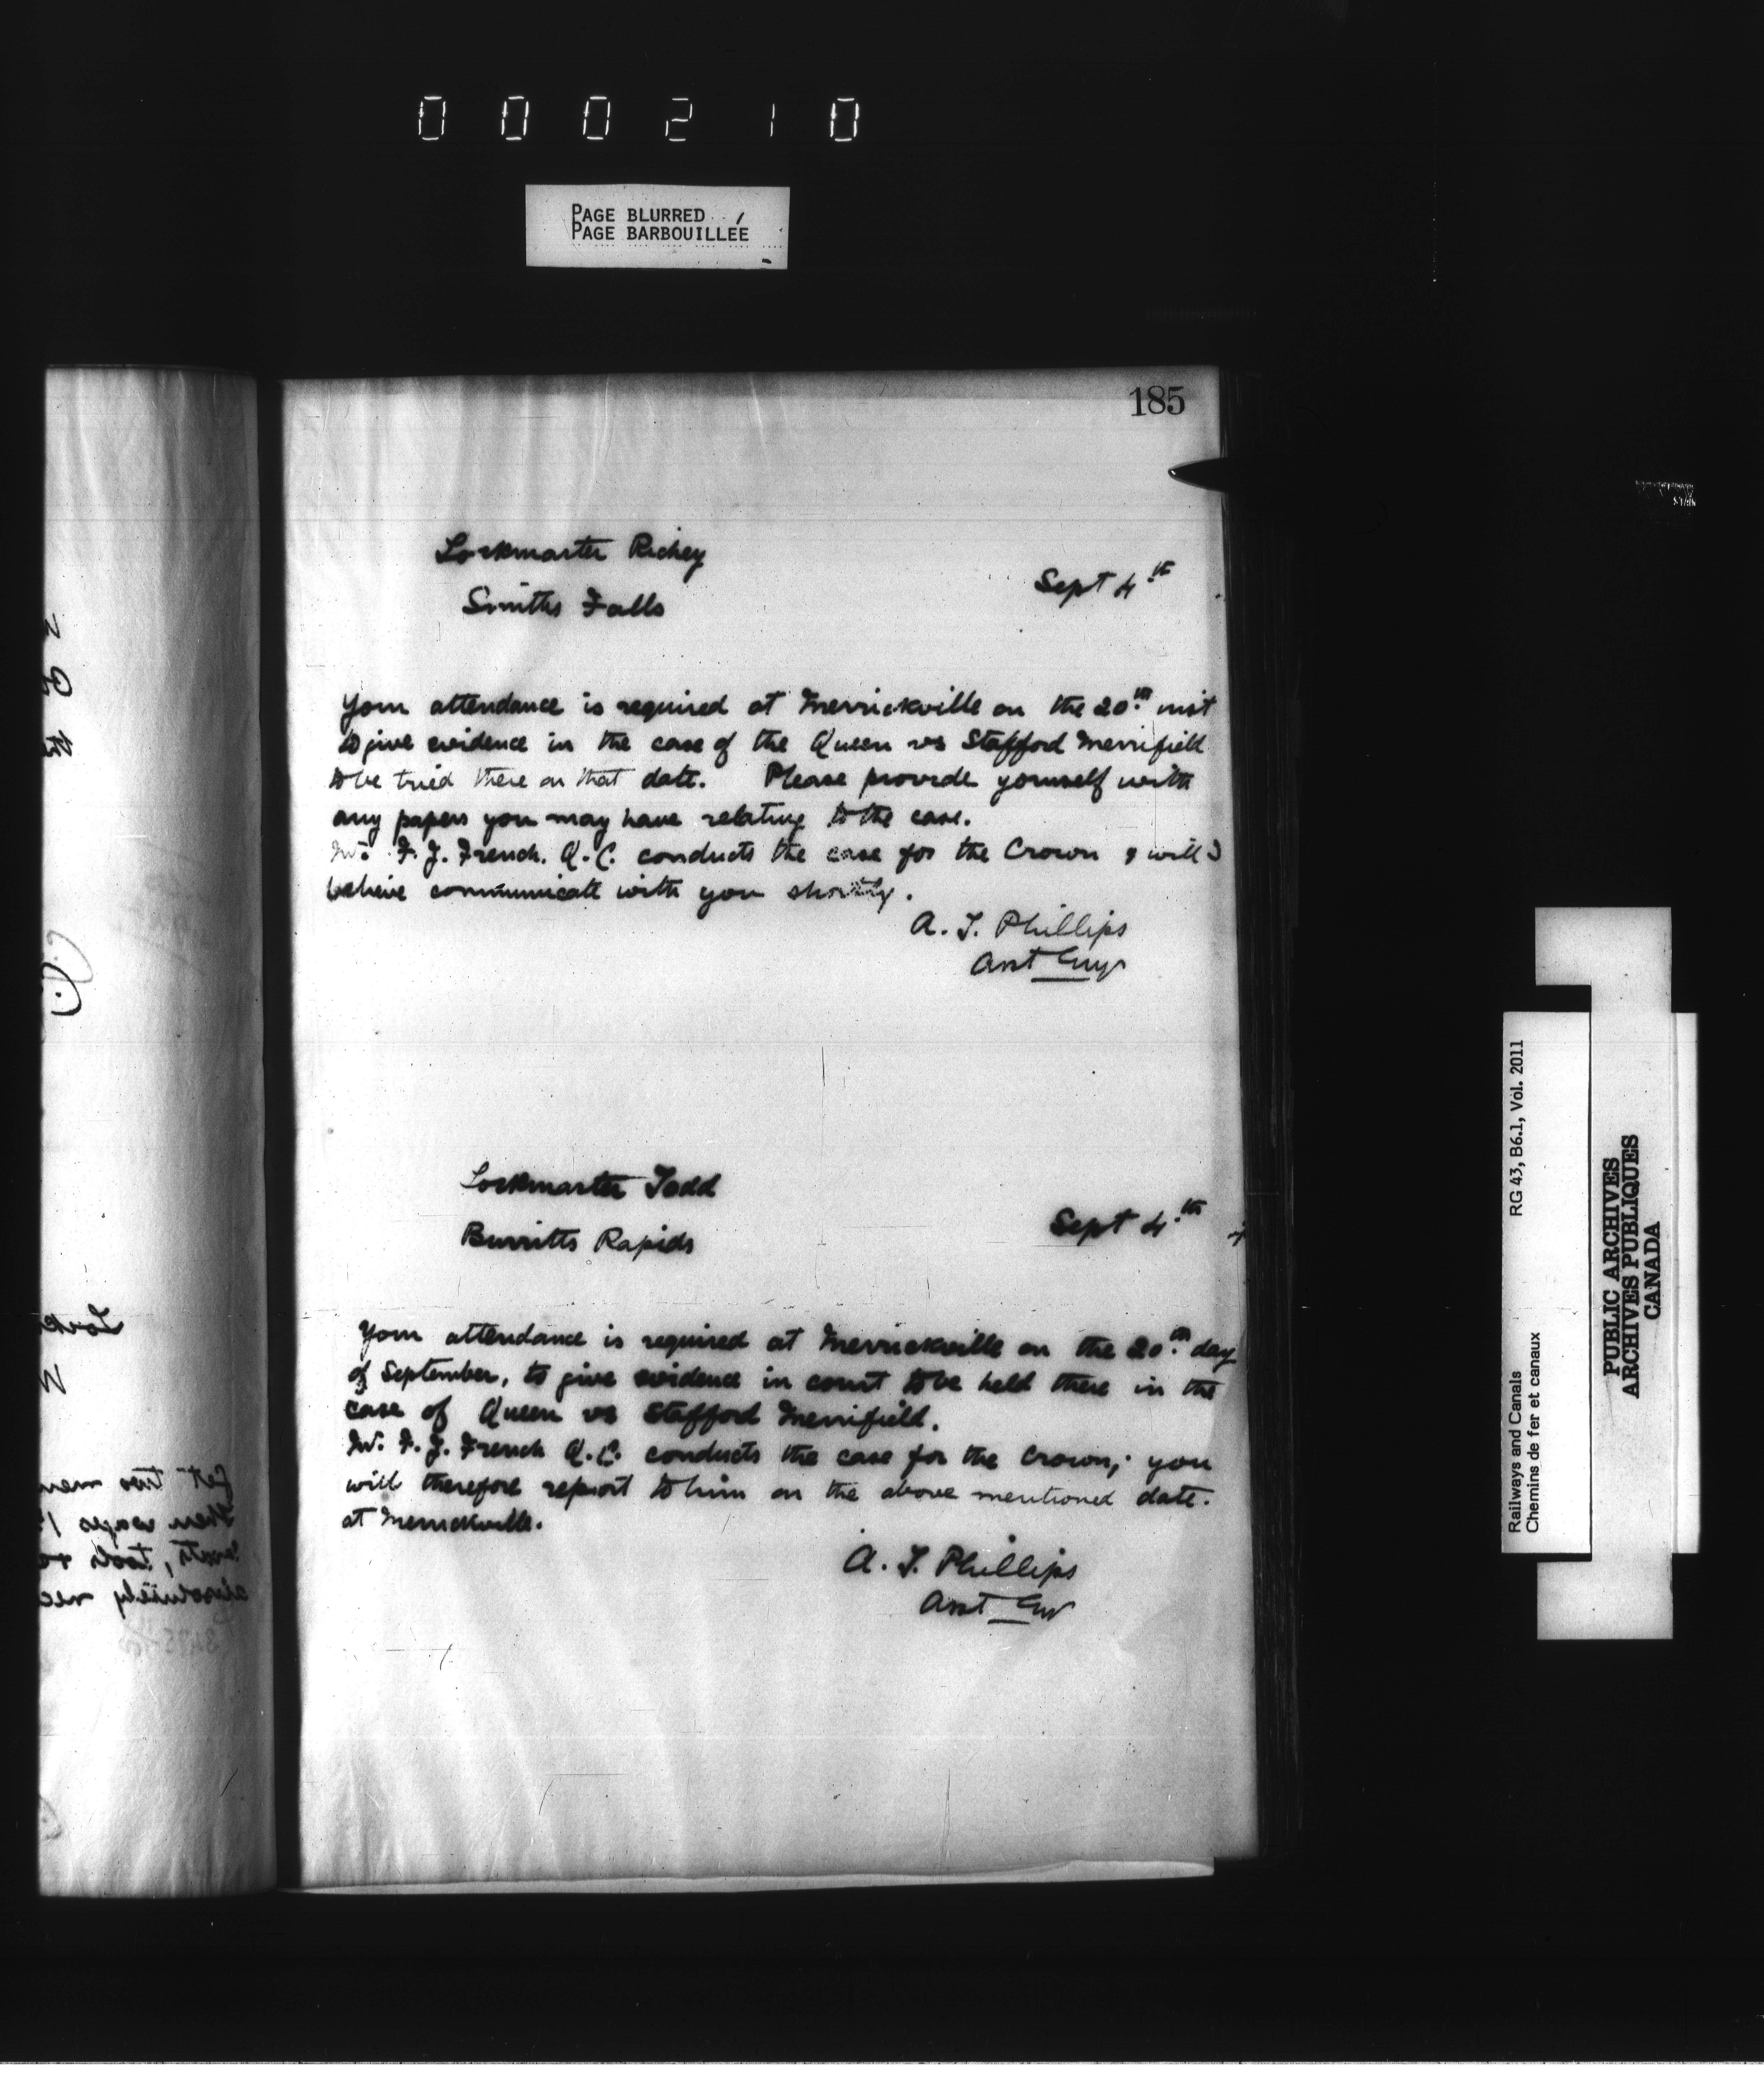 000210
PAGE BLURRED
PAGE BARBOUILLÉE
185
Lockmaster Richey
Smiths Falls
Sept 4th
Your attendance is required at Merrickville on the 20th inst
to give evidence in the case of the Queen vs Stafford Merrifield
to be tried there on that date. Please provide yourself with
any papers you may have relating to the case.
Mr. F. J. French. Q.C. conducts the case for the Crown & will I
believe communicate with you shortly.
A. T. Phillips
Asst Engr
Lockmaster Todd
Burritts Rapids
Sept 4th
Your attendance is required at Merrickville on the 20th day
of September, to give evidence in court to be held there in the
case of Queen vs Stafford Merrifield.
Mr. F. J. French Q.C. conducts the case for the Crown; you
will therefore report to him on the above mentioned date.
at Merrickville.
A. T. Phillips
Asst Engr
Railways and Canals RG 43, B6.1, Vol. 2011
Chemins de fer et canaux
PUBLIC ARCHIVES
ARCHIVES PUBLIQUES
CANADA